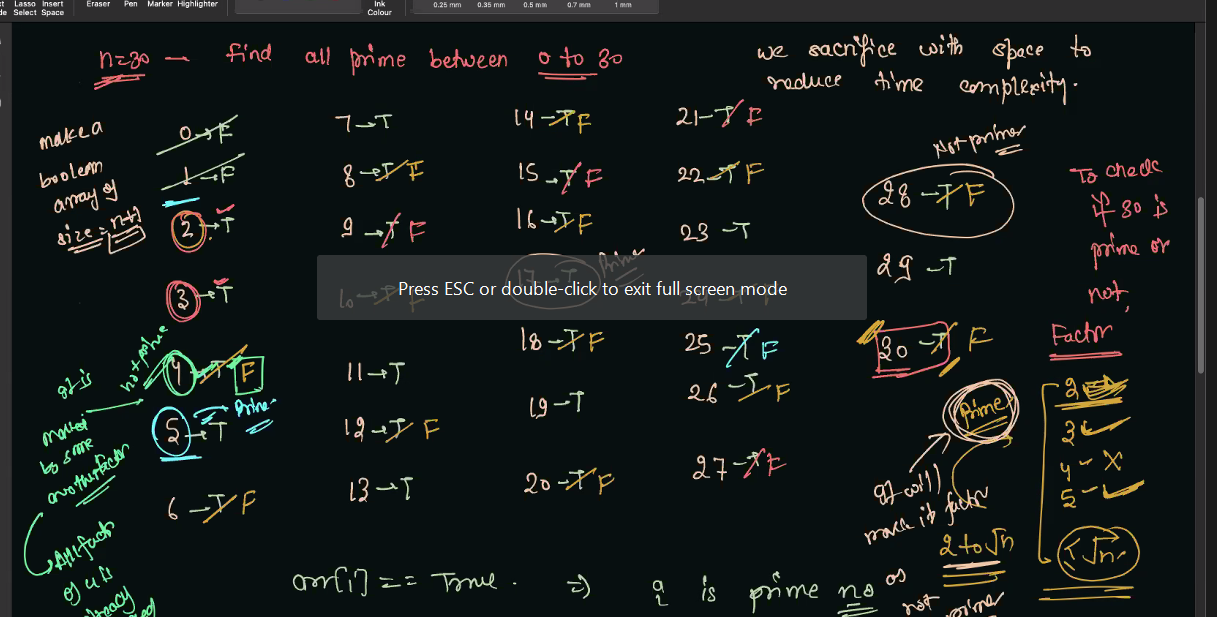 Lasso Select
Insert Space
Eraser
Pen
Marker
Highlighter
Ink Colour
0.25 mm
0.35 mm
0.5 mm
0.7 mm
1 mm
n=30 → find all prime between 0 to 30
we sacrifice with space to
reduce time complexity.
make a
boolean
array of
size = n+1
0→F
1→F
2→T
3→T
4→T F
5→T
6→T F
not prime
Prime
It is
marked
by some
another factor
All factor
of 4 is
already
7→T
8→T F
9→T F
11→T
12→T F
13→T
14→T F
15→T F
16→T F
17→T
Prime
18→T F
19→T
20→T F
21→T F
22→T F
23→T
25→T F
26→T F
27→T F
Not prime
28→T F
29→T
30→T F
Press ESC or double-click to exit full screen mode
To check
if 30 is
prime or
not,
Factor
2
3 ✓
4 - X
5 ✓
√n
Prime
It will
mark it factor
2 to √n
as
not
prime
arr[i] == True. ⇒ i is prime no